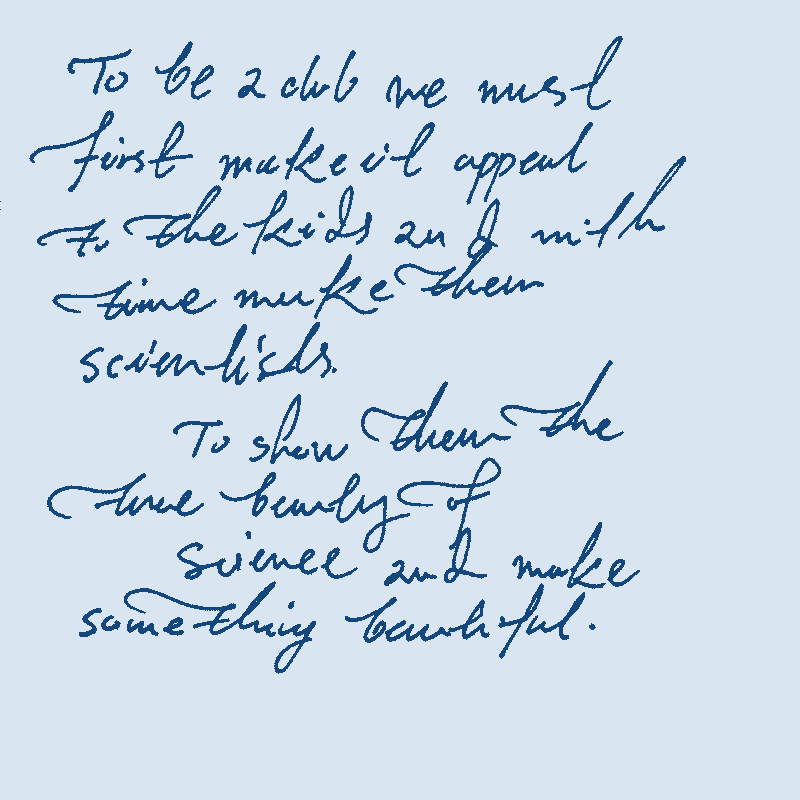 To be a club we must
first make it appeal
to the kids and with
time make them
scientists.
To show them the
true beauty of
science and make
something beautiful.